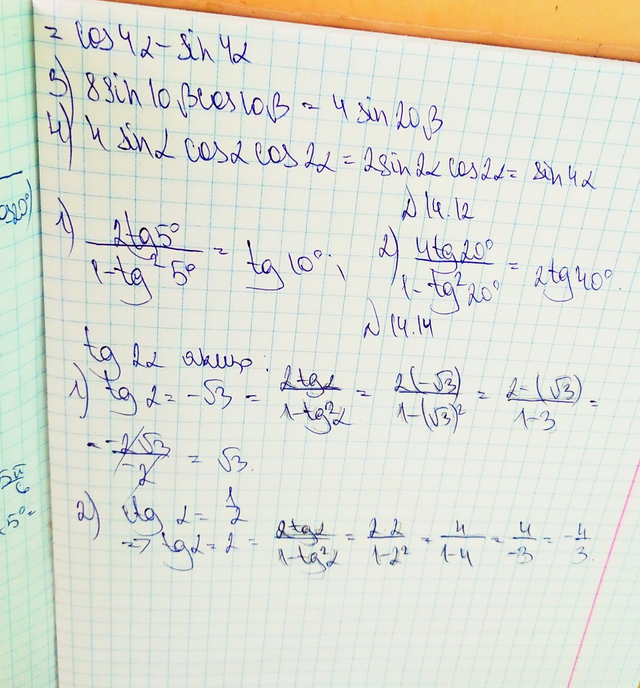 = cos4α - sin4α
3) 8sin10βcos10β = 4sin20β
4) 4 sinα cosα cos2α = 2sin2α cos2α = sin4α
N 14.12
1) \frac{2tg5°}{1-tg²5°} = tg10°; 2) \frac{4tg20°}{1-tg²20°} = 2tg40°.
N 14.14
tg 2α якщо:
1) tg α = -√3 = \frac{2tgα}{1-tg²α} = \frac{2(-√3)}{1-(√3)²} = \frac{2-(√3)}{1-3} =
= \frac{-2√3}{-2} = √3.
2) ctg α = \frac{1}{2}
=> tgα = 2 = \frac{2tgα}{1-tg²α} = \frac{2·2}{1-2²} = \frac{4}{1-4} = \frac{4}{-3} = -\frac{4}{3}.